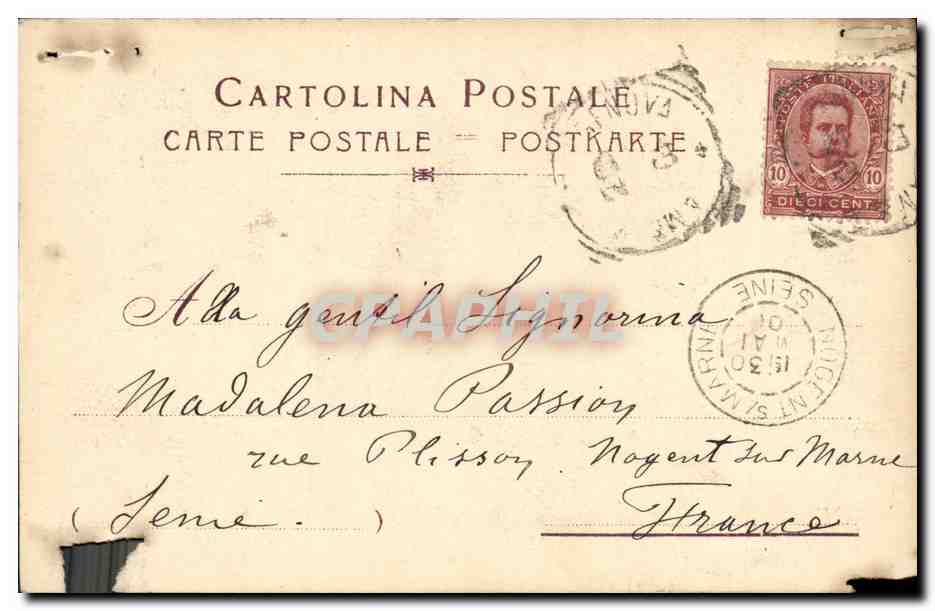 CARTOLINA POSTALE
CARTE POSTALE — POSTKARTE
POSTE ITALIANE
10 10
DIECI CENT.
NOGENT S/MARNE
SEINE
30
MAI
01
CPAPHIL
Alla gentil Signorina
Madalena Passion
rue Plisson. Nogent sur Marne
(Senie.) France